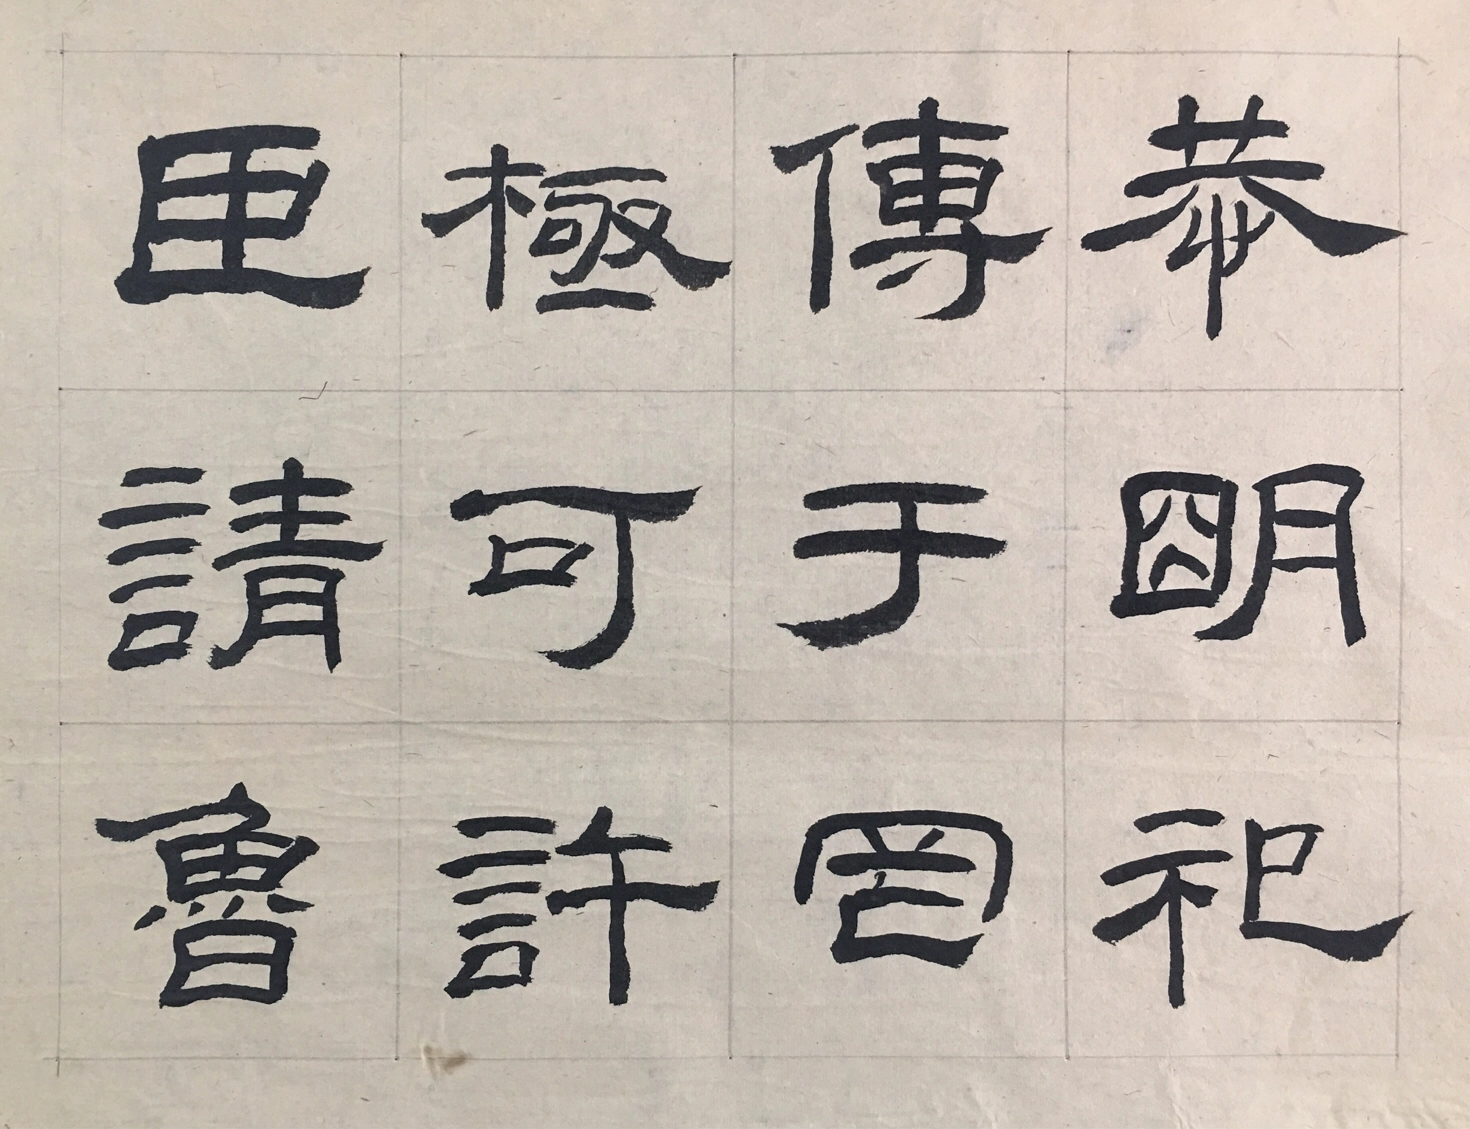 恭明祀
傳于罔
極可許
臣請魯